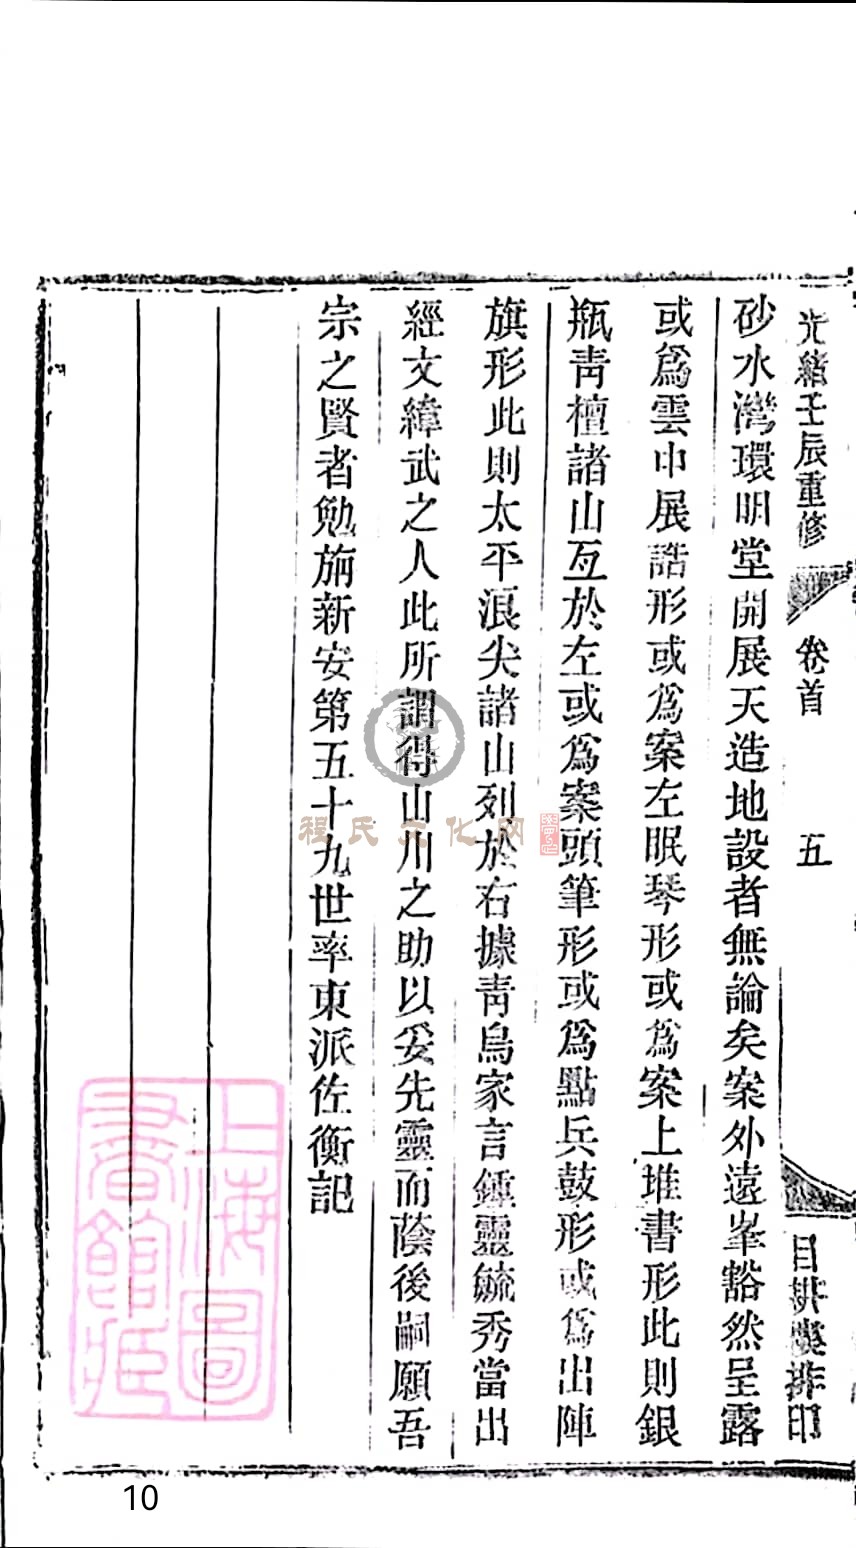 光緒壬辰重修
卷首
五
目耕樓排印
砂水灣環明堂開展天造地設者無論矣案外遠峯豁然呈露
或爲雲中展誥形或爲案左眠琴形或爲案上堆書形此則銀
瓶青檀諸山亙於左或爲案頭筆形或爲點兵鼓形或爲出陣
旗形此則太平浪尖諸山列於右據青烏家言鍾靈毓秀當出
經文緯武之人此所謂得山川之助以妥先靈而蔭後嗣願吾
宗之賢者勉旃新安第五十九世率東派佐衡記
程氏文化网
上海圖
書館藏
10